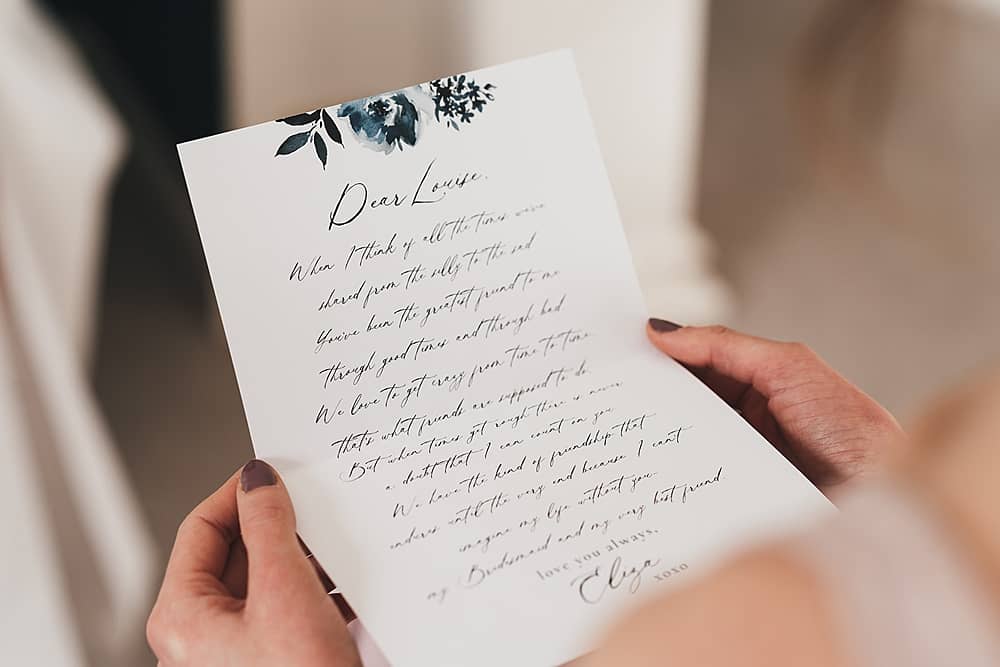 Dear Louise,
When I think of all the times we've
shared from the silly to the sad
You've been the greatest friend to me
through good times and through bad
We love to get crazy from time to time
that's what friends are supposed to do,
But when times get rough there is never
a doubt that I can count on you
We have the kind of friendship that
endures until the very end and because I can't
imagine my life without you
my Bridesmaid and my very best friend.
love you always,
Eliza
xoxo